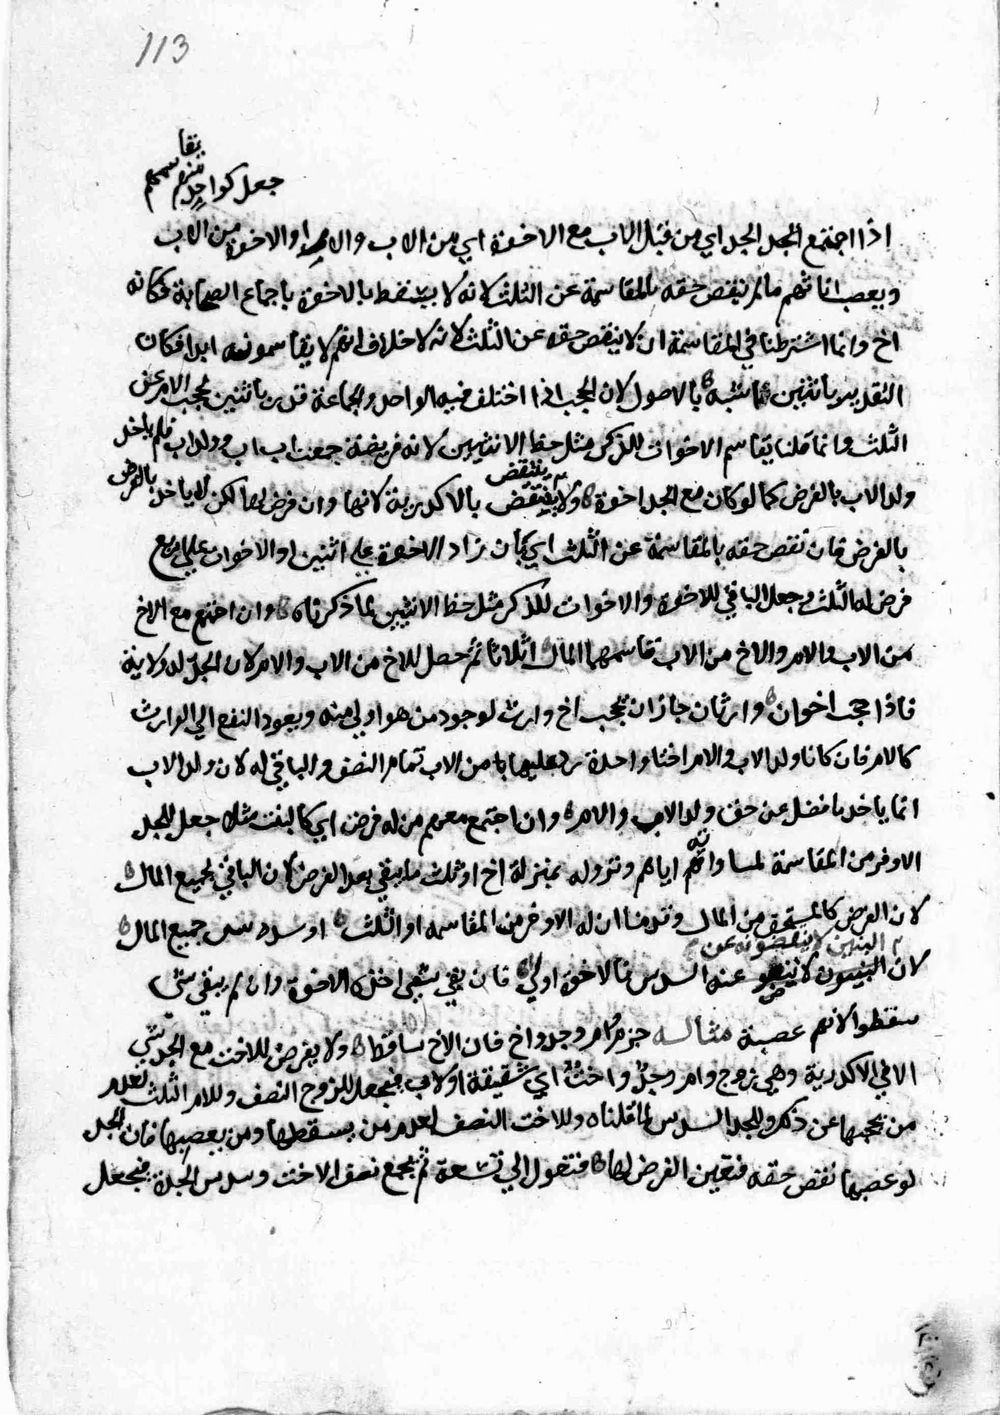 113
يقا
جعل كواحد منهم يقاسمهم
اذا اجتمع الجد الجد اي من قبل الاب مع الاخوة اي من الاب والام او الاخوة من الاب
ويعصب اناثهم ما لم ينقص حقه بالمقاسمة عن الثلث لانه لا يسقط بالاخوة باجماع الصحابة فكانه
اخ وانما اشترطنا في المقاسمة ان لا ينقص حقه عن الثلث لانه لا خلاف انهم لا يقاسمونه ابدا فكان
التقدير باثنين اشبه بالاصول لان الحجب اذا اختلف فيه الواحد والجماعة قدر باثنين كحجب الام عن
الثلث وانما قلنا يقاسم الاخوات للذكر مثل حظ الانثيين لانه فريضة جمعت اب اب وولد اب فلم ياخذ
ولد الاب بالفرض كما لو كان مع الجد اخوة ولا ينتقض بالاكدرية لانها وان فرض لها لكن لا ياخذ بالفرض
ينتقض
بالفرض فان نقص حقه بالمقاسمة عن الثلث اي بان زاد الاخوة على اثنين او الاخوات على اربع
فرض له الثلث وجعل الباقي للاخوة والاخوات للذكر مثل حظ الانثيين لما ذكرناه وان اجتمع مع الاخ
من الاب والام والاخ من الاب قاسمهما المال اثلاثا ثم حصل للاخ من الاب والام لان الجد له ولاية
فاذا حجب اخوان وارثان جاز ان يحجب اخ وارث لوجود من هو اولى منه ويعود النفع الى الوارث
كالام فان كانا ولد الاب والام اختا واحدة رد عليها من الاب تمام النصف والباقي له لان ولد الاب
انما ياخذ ما فضل عن حق ولد الاب والام وان اجتمع معهم من له فرض اي كالبنت مثلا جعل للجد
الاوفر من المقاسمة لمساواته اياهم ونزوله بمنزلة اخ او ثلث ما يبقى بعد الفرض لان الباقي كجميع المال
لان الفرض كالمستحق من المال وقدمنا ان له الاوفر من المقاسمة او الثلث او سدس جميع المال
البنين لا ينقصونه عن
لان البنون عنه السدس فالاخوة اولى فان بقي شيء اخذه الاخوة وان لم يبقى شيء
سقطوا لانهم عصبة مثاله زوج وام وجد واخ فان الاخ ساقط ولا يفرض للاخت مع الجد شي
الا في الاكدرية وهي زوج وام وجد واخت اي شقيقة او لاب فيجعل للزوج النصف وللام الثلث لعدم
من يحجبها عن ذلك وللجد السدس لما قلناه وللاخت النصف لعدم من يسقطها ومن يعصبها فان الجد
لو عصبها نقص حقه فتعين الفرض لها فتعول الى تسعة ثم يجمع نصف الاخت وسدس الجد فيجعل